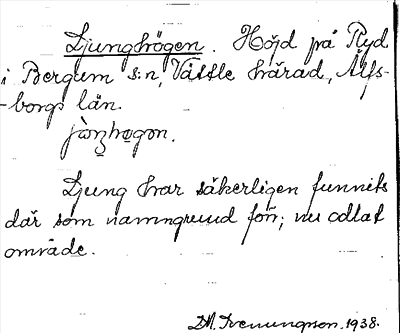 Ljunghögen. Höjd på Ryd
i Bergum s:n, Vättle härad, Älfs-
-borgs län.
Ljung har säkerligen funnits
där som namngrund för; nu odlat
område.
1938.